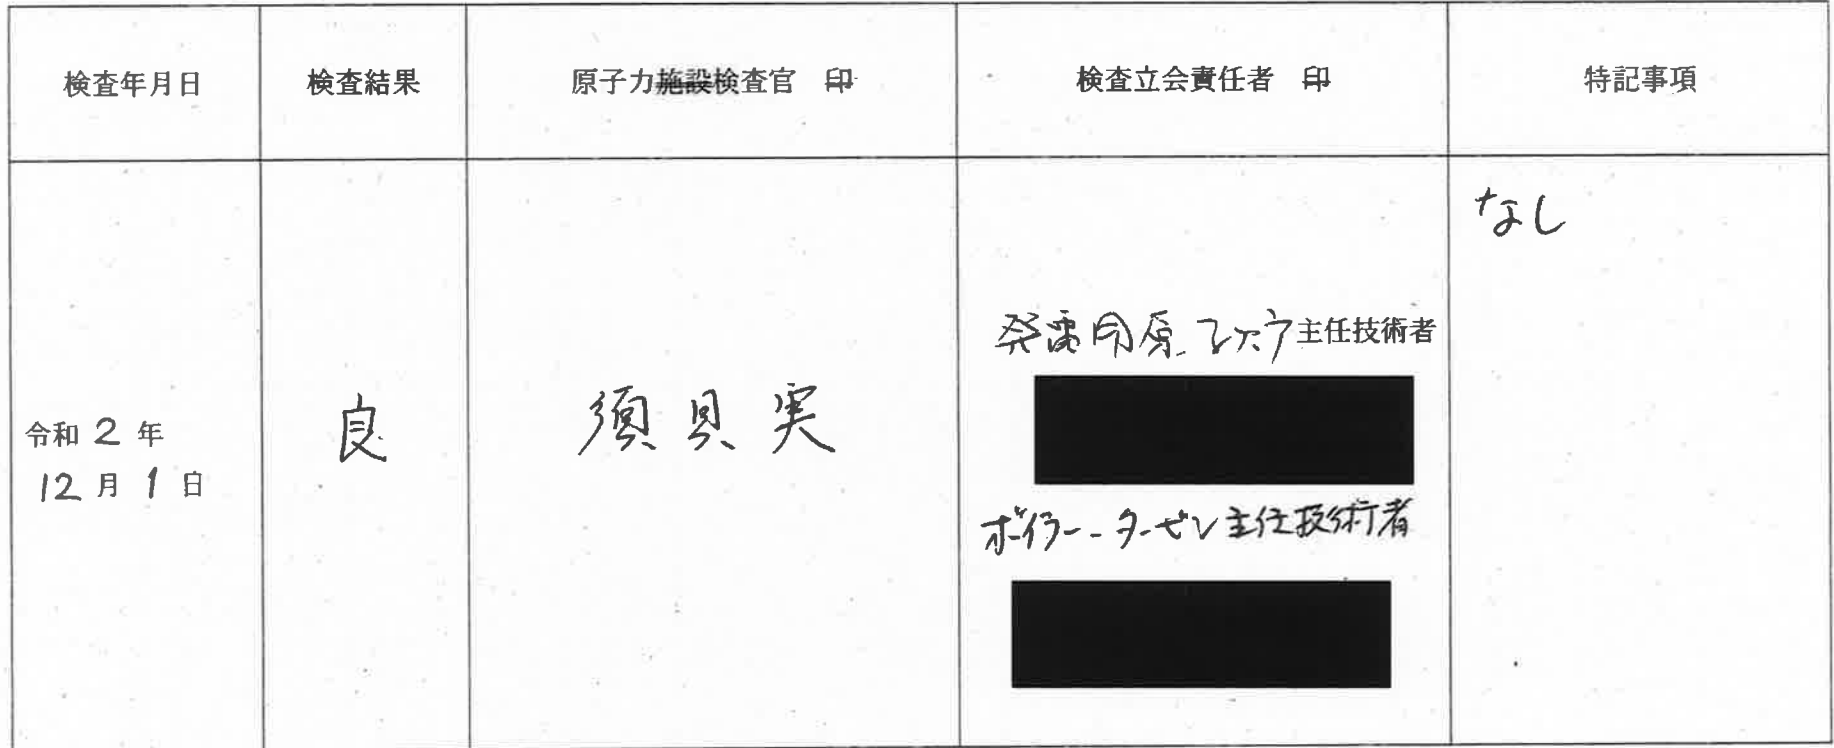 検査年月日
検査結果
原子力施設検査官 印
検査立会責任者 印
特記事項
令和 2 年
12 月 1 日
良
須貝 実
発電用原子炉主任技術者
ボイラー・タービン主任技術者
なし